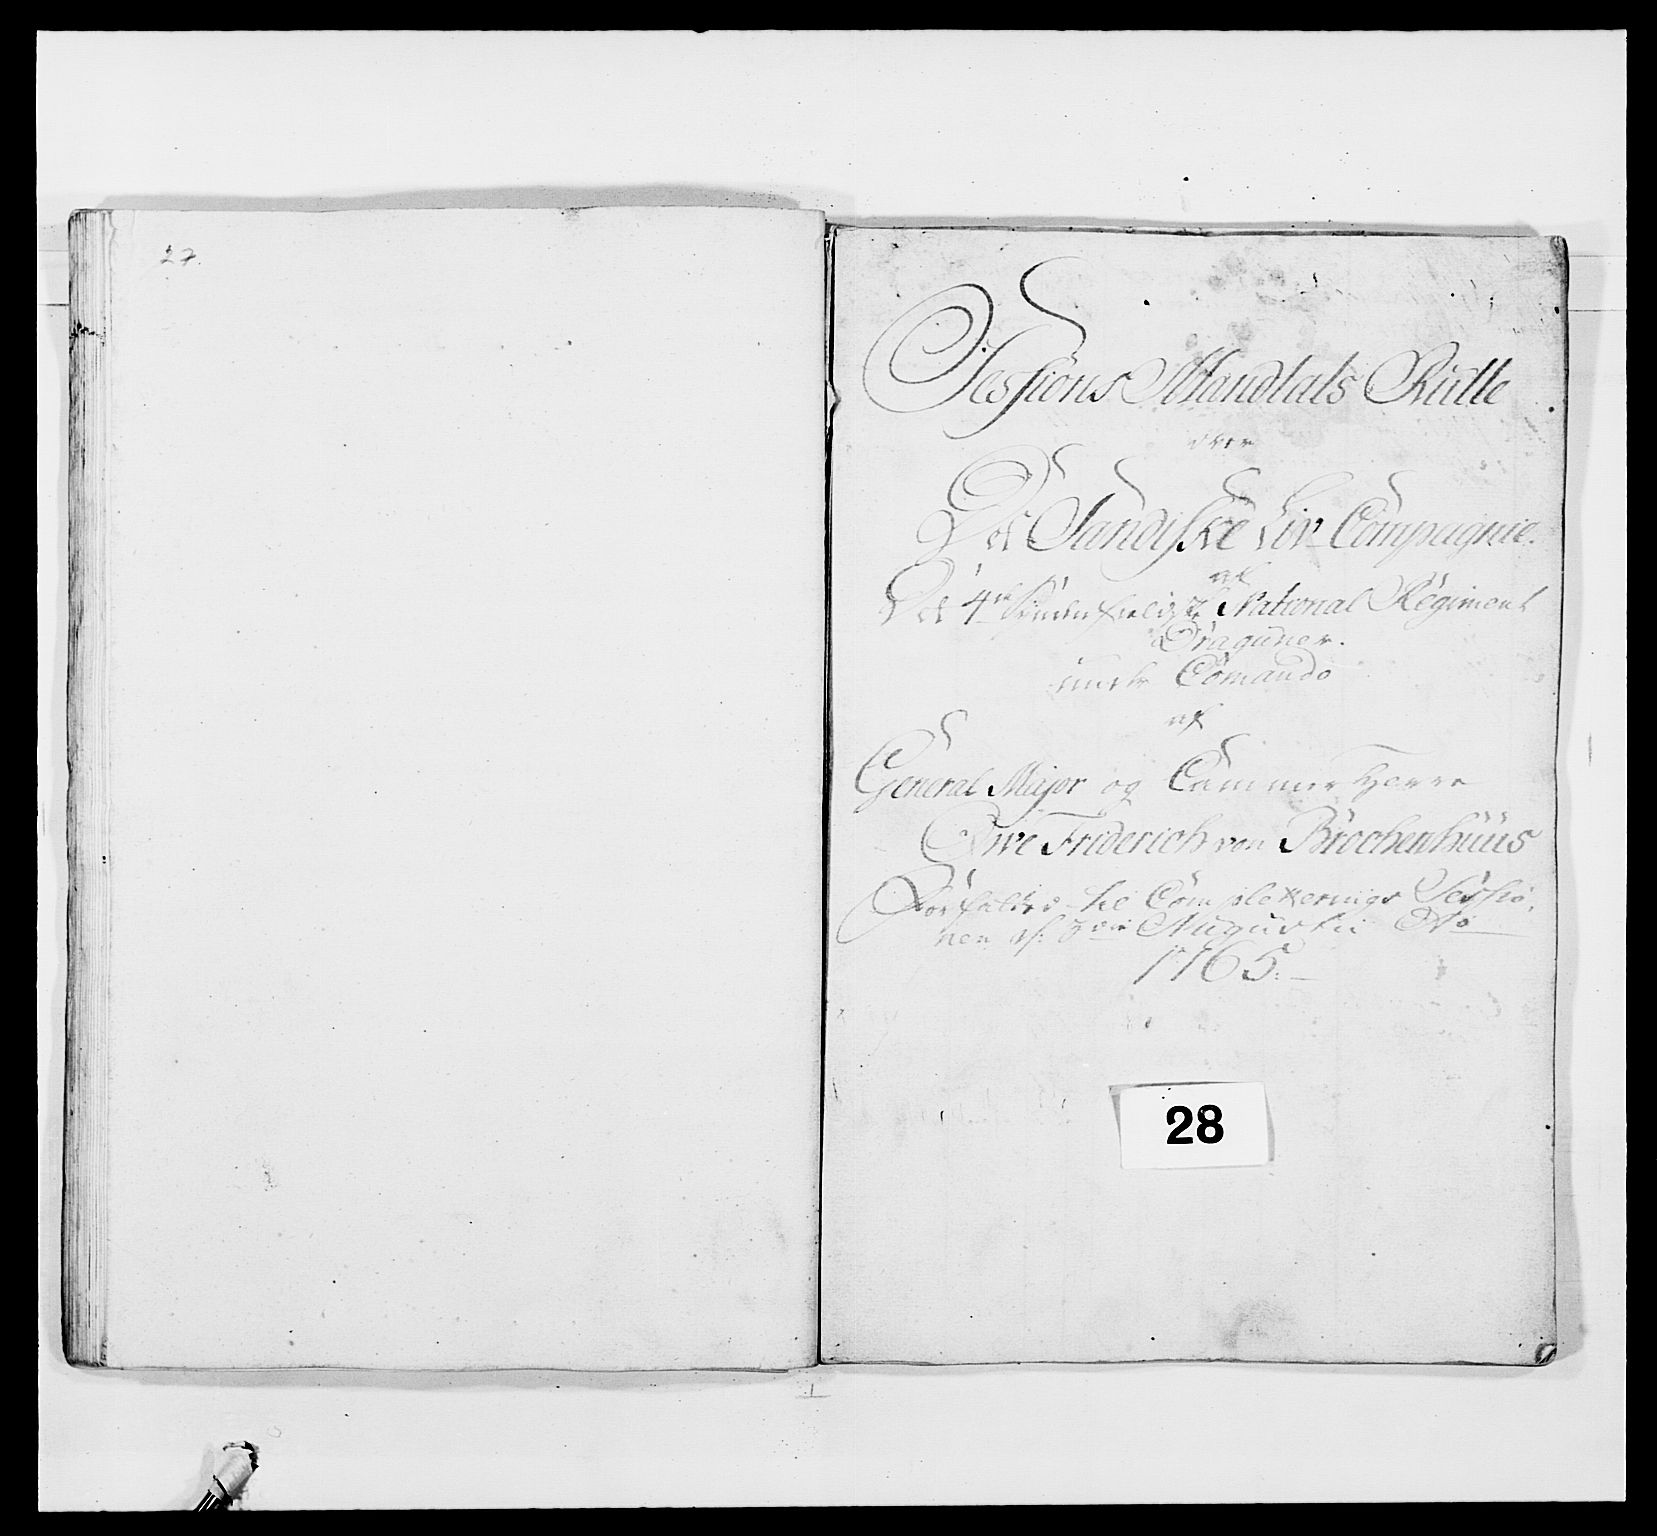 27.
Sessions Mandtals Rulle
over
Det Sandiske Liv Compagnie.
af
Det 4de Søndenfieldske National Regiment
Dragouner.
under Comando
af
General Major og Cammer Herre
Owe Friderich von Brochenhuus
Forfatted til Completterings Sessio,
nen d: Augustii Ao
1765.
28